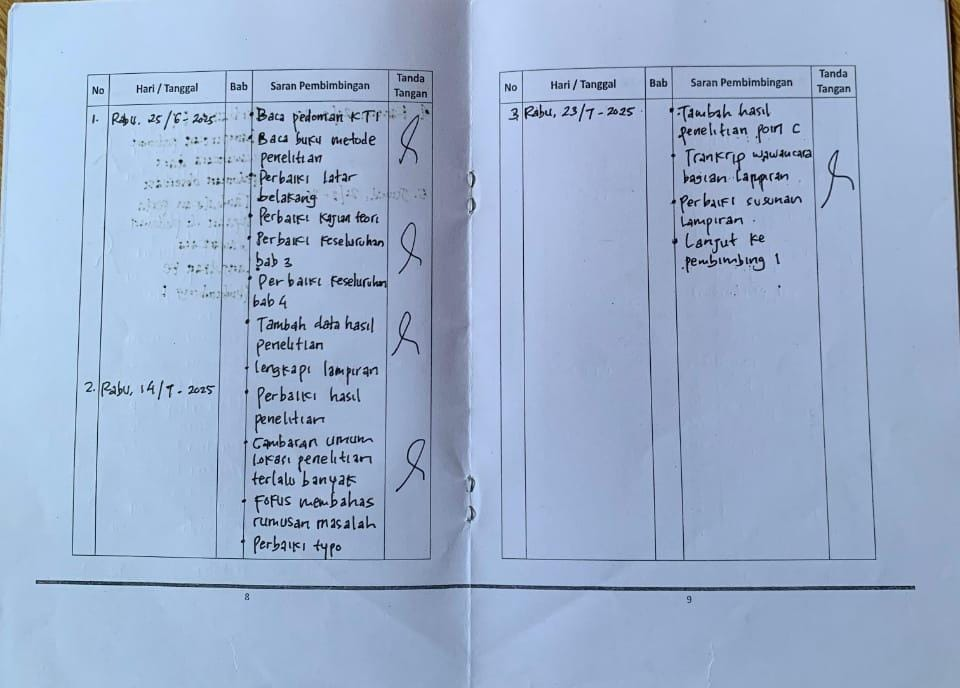 No Hari / Tanggal Bab Saran Pembimbingan Tanda Tangan
1. Rabu, 25/6-2025 • Baca pedoman KTI
• Baca buku metode
penelitian
• Perbaiki latar
belakang
• Perbaiki kajian teori
• Perbaiki keseluruhan
bab 3
• Perbaiki keseluruhan
bab 4
• Tambah data hasil
penelitian
• lengkapi lampiran
2. Rabu, 14/7-2025 • Perbaiki hasil
penelitian
• Gambaran umum
lokasi penelitian
terlalu banyak
• Fofus membahas
rumusan masalah
• Perbaiki typo
8
No Hari / Tanggal Bab Saran Pembimbingan Tanda Tangan
3 Rabu, 23/7-2025 • Tambah hasil
penelitian poin C
• Trankrip wawancara
bagian lampiran
• Perbaiki susunan
lampiran.
• Lanjut ke
pembimbing 1
9